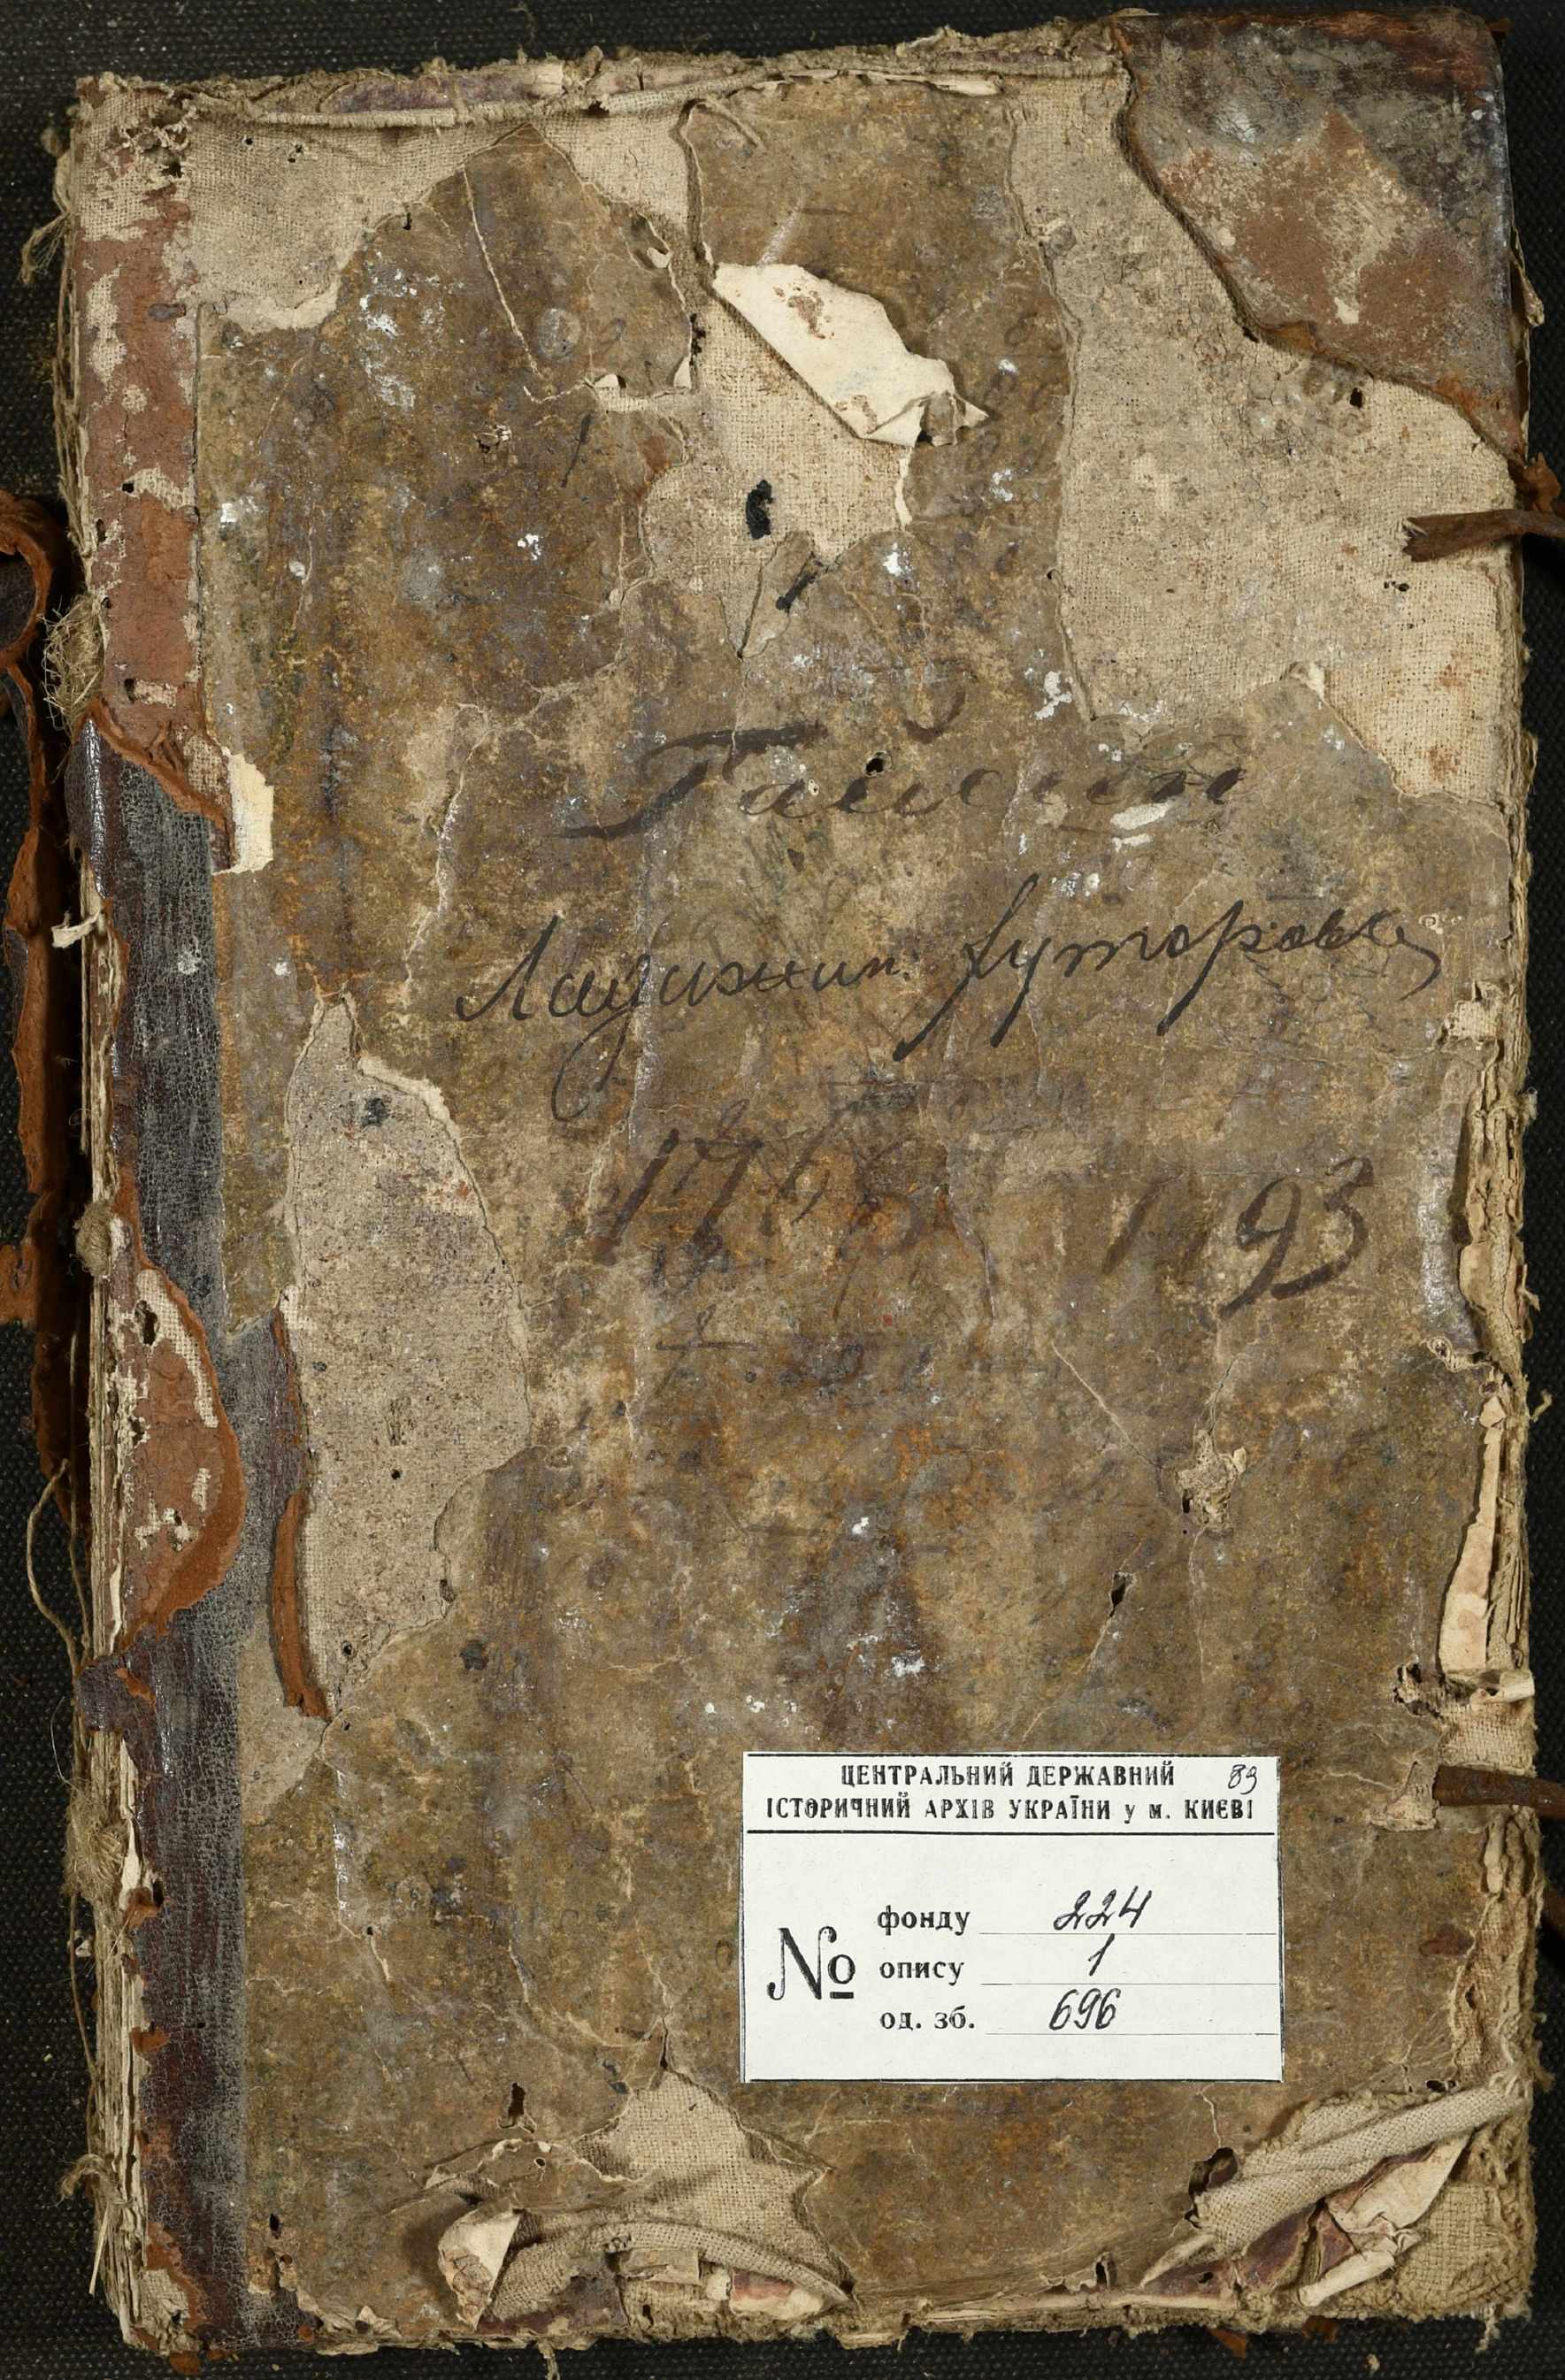 Гайсин
Ладижин. Хуторовка
1766
1793
ЦЕНТРАЛЬНИЙ ДЕРЖАВНИЙ 83
ІСТОРИЧНИЙ АРХІВ УКРАЇНИ у м. КИЄВІ
№
фонду 224
опису 1
од. зб. 696